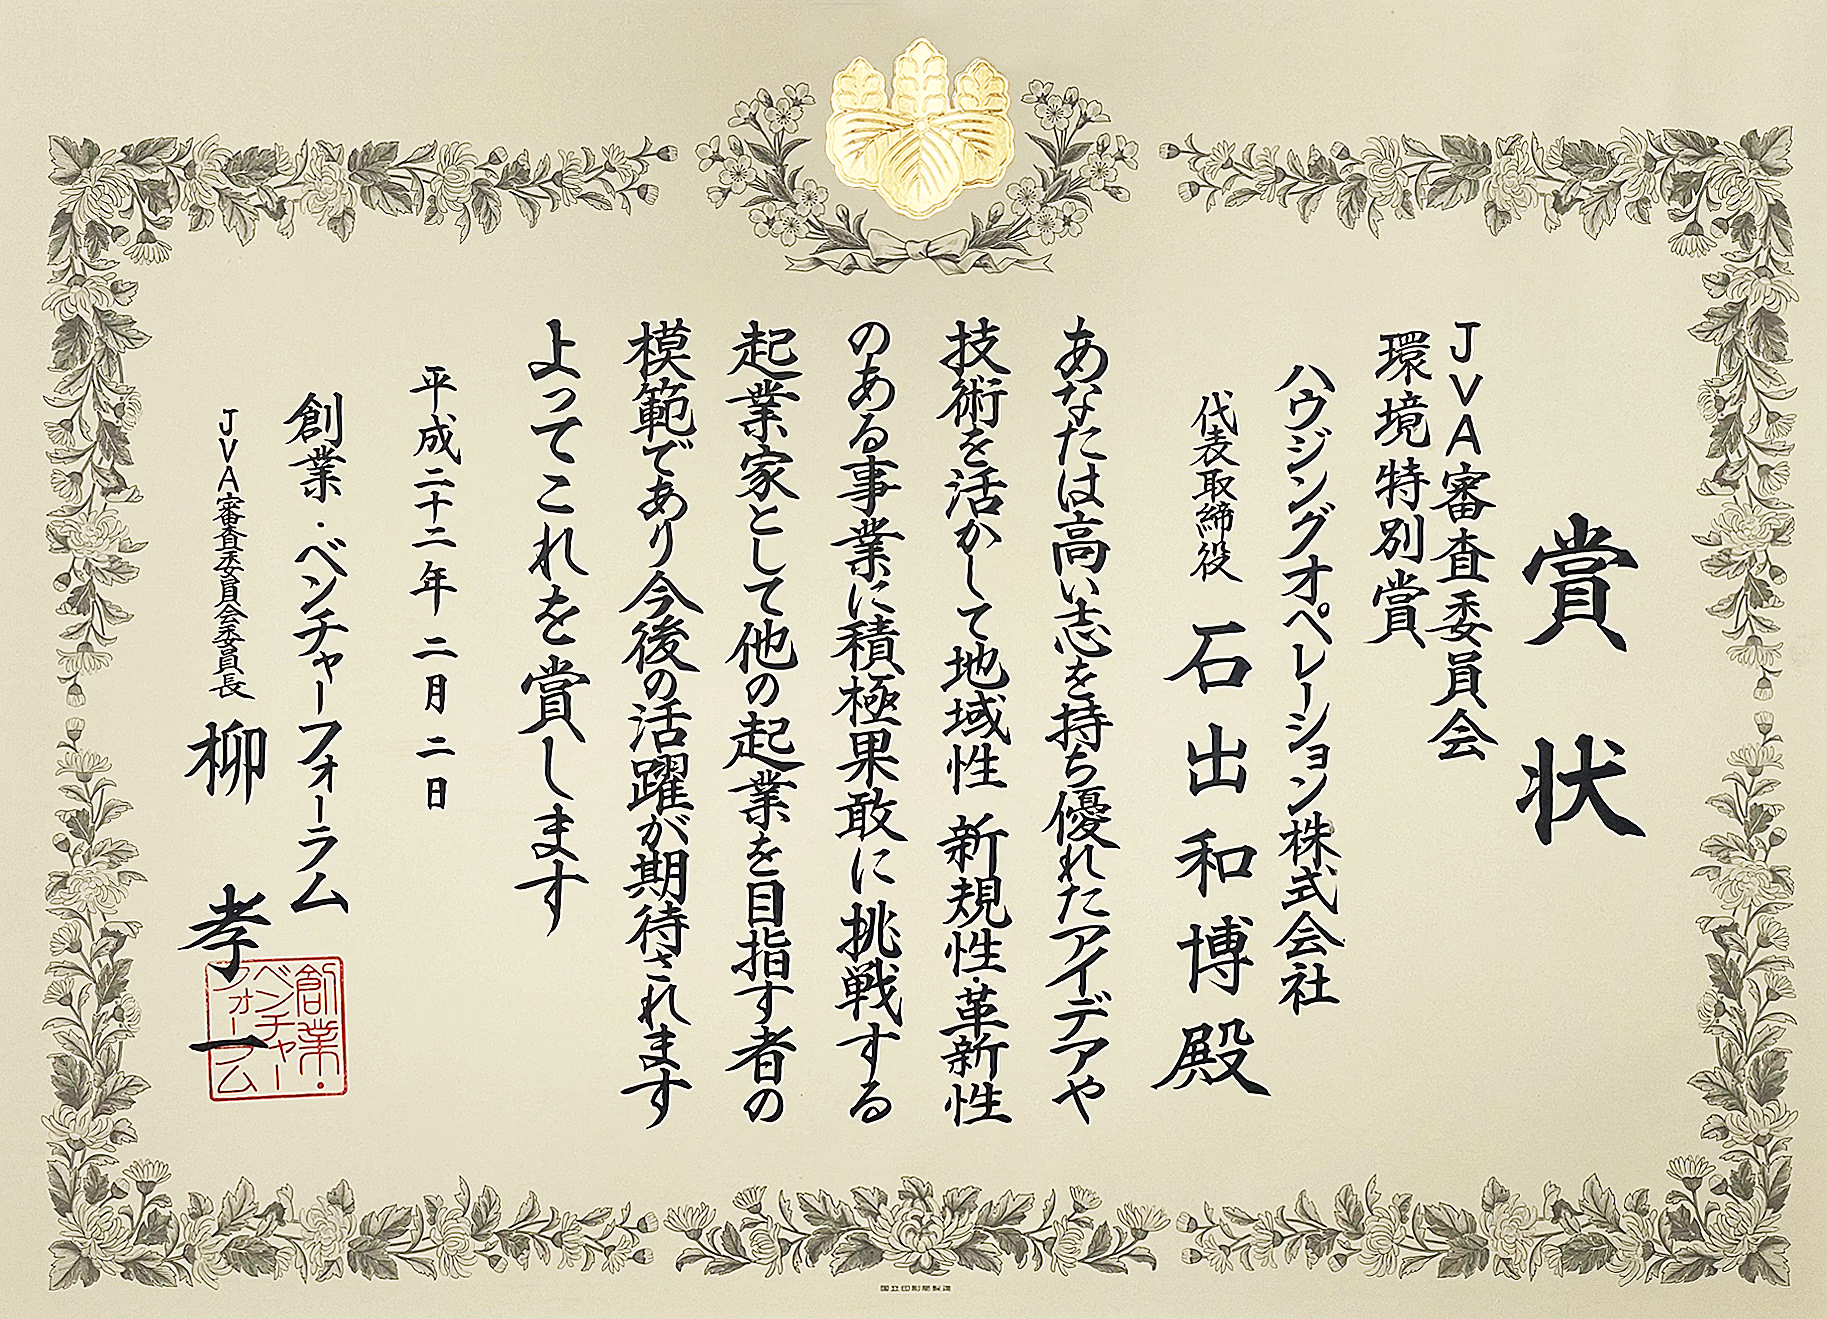 賞状
JVA審査委員会
環境特別賞
ハウジングオペレーション株式会社
代表取締役 石出和博殿
あなたは高い志を持ち優れたアイデアや
技術を活かして地域性 新規性・革新性
のある事業に積極果敢に挑戦する
起業家として他の起業を目指す者の
模範であり今後の活躍が期待されます
よってこれを賞します
平成二十二年 二月 二日
創業・ベンチャーフォーラム
JVA審査委員会委員長 柳 孝一
創業・
ベンチャー
フォーラム
国立印刷局製造